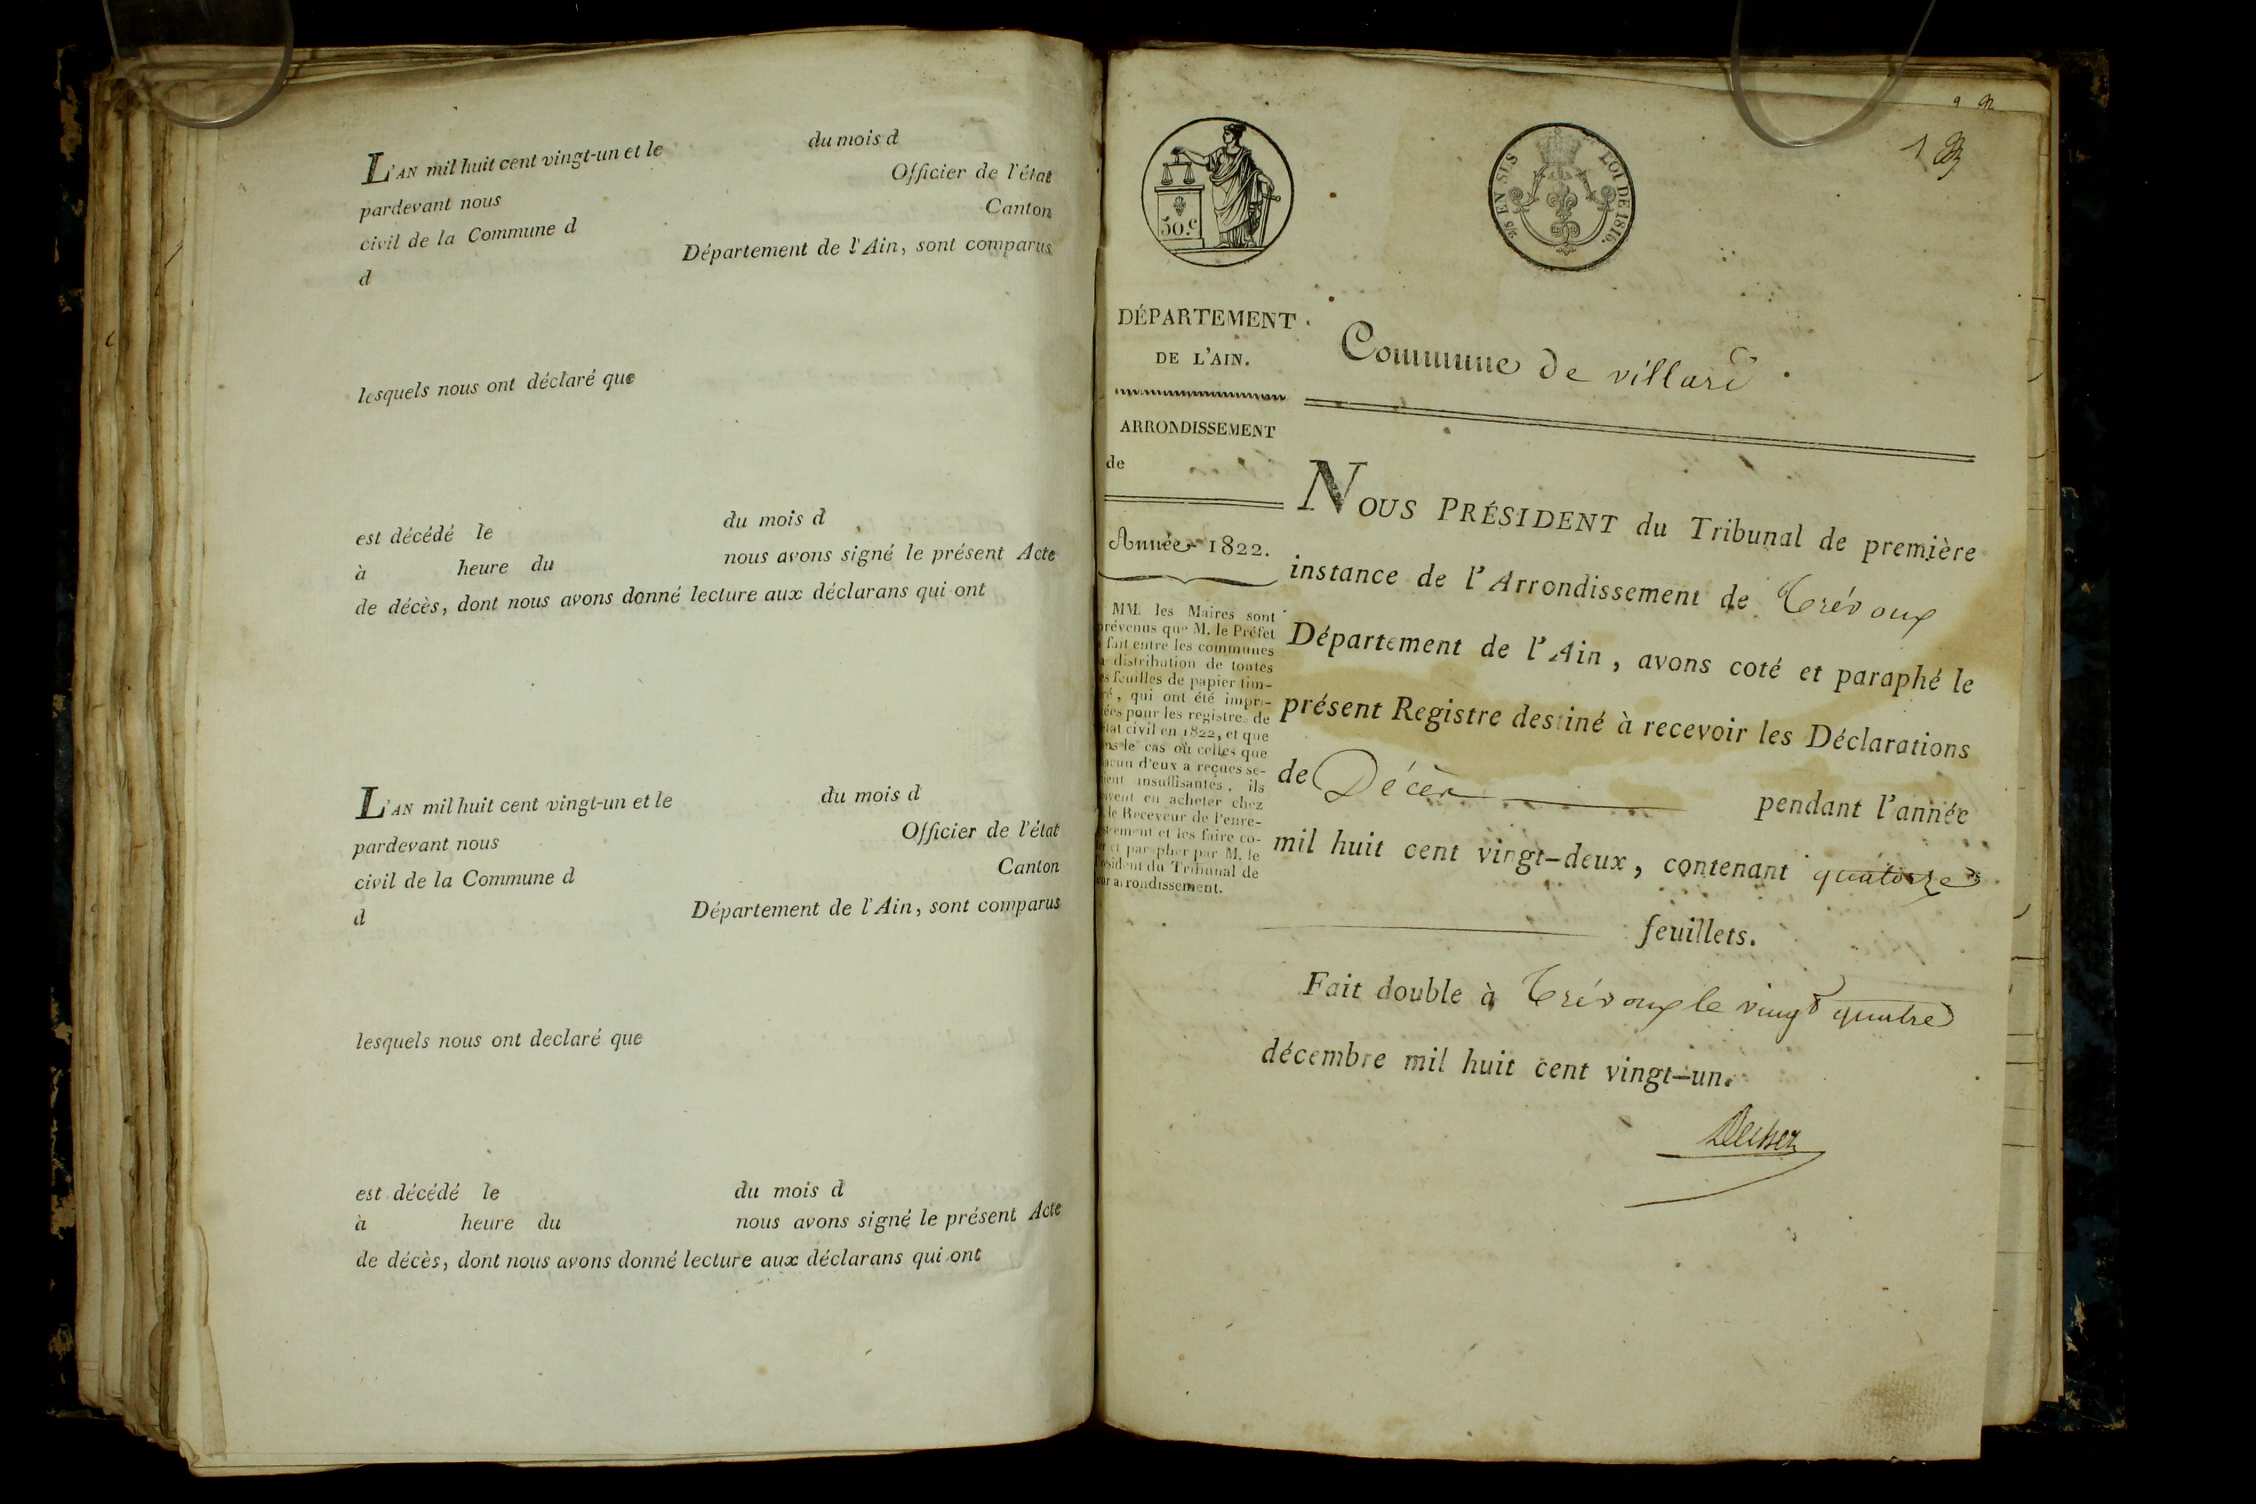 L'AN mil huit cent vingt-un et le du mois d
pardevant nous Officier de l'état
civil de la Commune d Canton
d Département de l'Ain, sont comparus
lesquels nous ont déclaré que
est décédé le du mois d
à heure du nous avons signé le présent Acte
de décès, dont nous avons donné lecture aux déclarans qui ont
L'AN mil huit cent vingt-un et le du mois d
pardevant nous Officier de l'état
civil de la Commune d Canton
d Département de l'Ain, sont comparus
lesquels nous ont declaré que
est décédé le du mois d
à heure du nous avons signé le présent Acte
de décès, dont nous avons donné lecture aux déclarans qui ont
1
50.c
EN SUS
LOI DE 1816.
DÉPARTEMENT
DE L'AIN.
ARRONDISSEMENT
de
Année 1822.
MM. les Maires sont
prévenus que M. le Préfet
a fait entre les communes
la distribution de toutes
les feuilles de papier tim-
bré, qui ont été impri-
mées pour les registres de
l'état civil en 1822, et que
dans le cas où celles que
chacun d'eux a reçues se-
roient insuffisantes, ils
peuvent en acheter chez
le Receveur de l'enre-
gistrement et les faire co-
ter et parapher par M. le
Président du Tribunal de
leur arrondissement.
Commune de villard
NOUS PRÉSIDENT du Tribunal de première
instance de l'Arrondissement de Trévoux
Département de l'Ain, avons coté et paraphé le
présent Registre destiné à recevoir les Déclarations
de Décès pendant l'année
mil huit cent vingt-deux, contenant quatorze
feuillets.
Fait double à Trévoux le vingt quatre
décembre mil huit cent vingt-un.